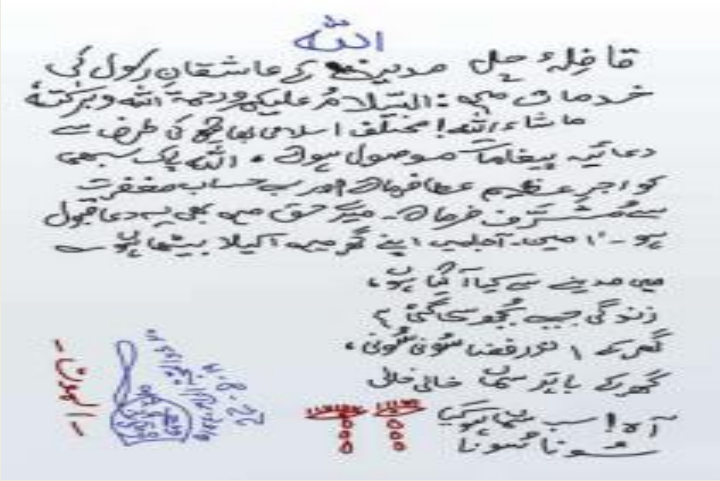 اللہ
قافلۂ چل مدینہ کے عاشقانِ رسول کی
خدمات میں: السلامُ علیکم ورحمۃ اللہ وبرکتہٗ
ماشاءاللہ! مختلف اسلامی بھائیوں کی طرف سے
دعائیہ پیغامات موصول ہوئے، اللہ پاک سبھی
کو اجرِ عظیم عطا فرمائے اور بے حساب مغفرت
سے مُشرَّف فرمائے۔ میرے حق میں بھی یہ دعا قبول
ہو۔ آمین۔ اپنے گھر میں اکیلا بیٹھا ہوں
میں مدینے سے کیا آ گیا ہوں،
زندگی جیسے بُجھ سی گئی ہے
گھر کے اندر فضا سُونی سُونی،
گھر کے باہر سماں خالی خالی
آہ! سب سماں ہو گیا
سُونا سُونا